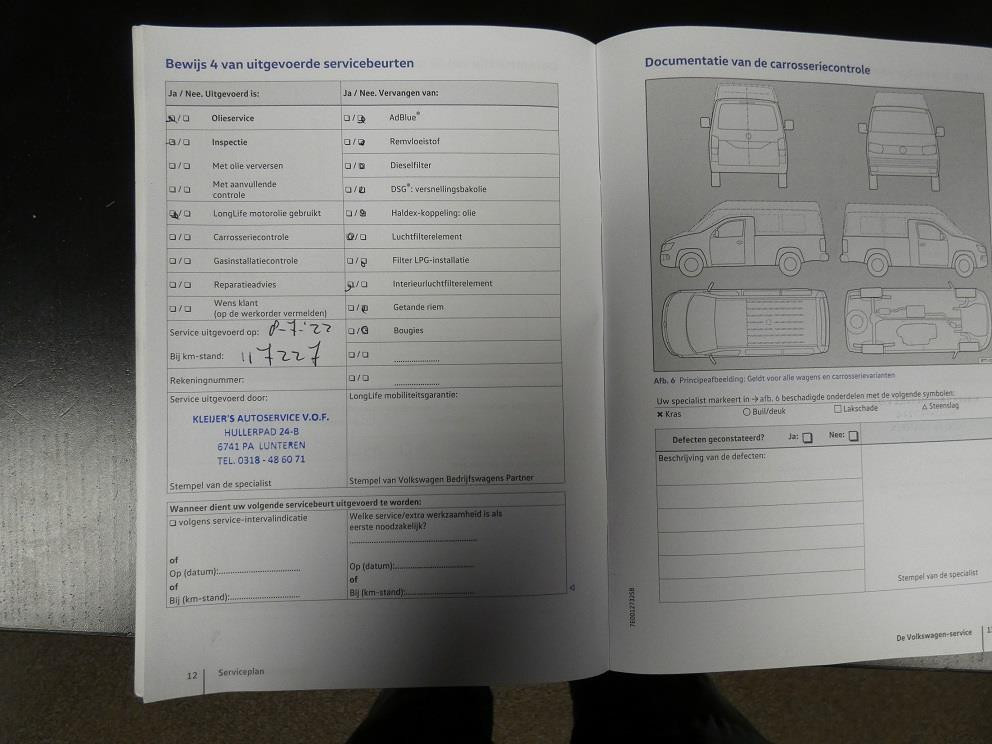 Bewijs 4 van uitgevoerde servicebeurten
Ja / Nee. Uitgevoerd is:
Ja / Nee. Vervangen van:
☒/☐ Olieservice
☐/☒ AdBlue®
☒/☐ Inspectie
☐/☒ Remvloeistof
☐/☐ Met olie verversen
☐/☒ Dieselfilter
☐/☐ Met aanvullende
controle
☐/☒ DSG®: versnellingsbakolie
☒/☐ LongLife motorolie gebruikt
☐/☒ Haldex-koppeling: olie
☐/☐ Carrosseriecontrole
☒/☐ Luchtfilterelement
☐/☐ Gasinstallatiecontrole
☐/☒ Filter LPG-installatie
☐/☐ Reparatieadvies
☒/☐ Interieurluchtfilterelement
☐/☐ Wens klant
(op de werkorder vermelden)
☐/☒ Getande riem
Service uitgevoerd op: 8-7-'22
☐/☒ Bougies
Bij km-stand: 117227
☐/☐ ......................
Rekeningnummer:
☐/☐ ......................
Service uitgevoerd door:
LongLife mobiliteitsgarantie:
KLEIJER'S AUTOSERVICE V.O.F.
HULLERPAD 24-B
6741 PA LUNTEREN
TEL. 0318 - 48 60 71
Stempel van de specialist
Stempel van Volkswagen Bedrijfswagens Partner
Wanneer dient uw volgende servicebeurt uitgevoerd te worden:
☐ volgens service-intervalindicatie
Welke service/extra werkzaamheid is als
eerste noodzakelijk?
of
Op (datum):
Op (datum):
of
of
Bij (km-stand):
Bij (km-stand):
12 Serviceplan
Documentatie van de carrosseriecontrole
Afb. 6 Principeafbeelding: Geldt voor alle wagens en carrosserievarianten
Uw specialist markeert in → afb. 6 beschadigde onderdelen met de volgende symbolen:
✖ Kras ○ Buil/deuk □ Lakschade △ Steenslag
Defecten geconstateerd? Ja: ☐ Nee: ☐
Beschrijving van de defecten:
Stempel van de specialist
7E0012732SB
De Volkswagen-service